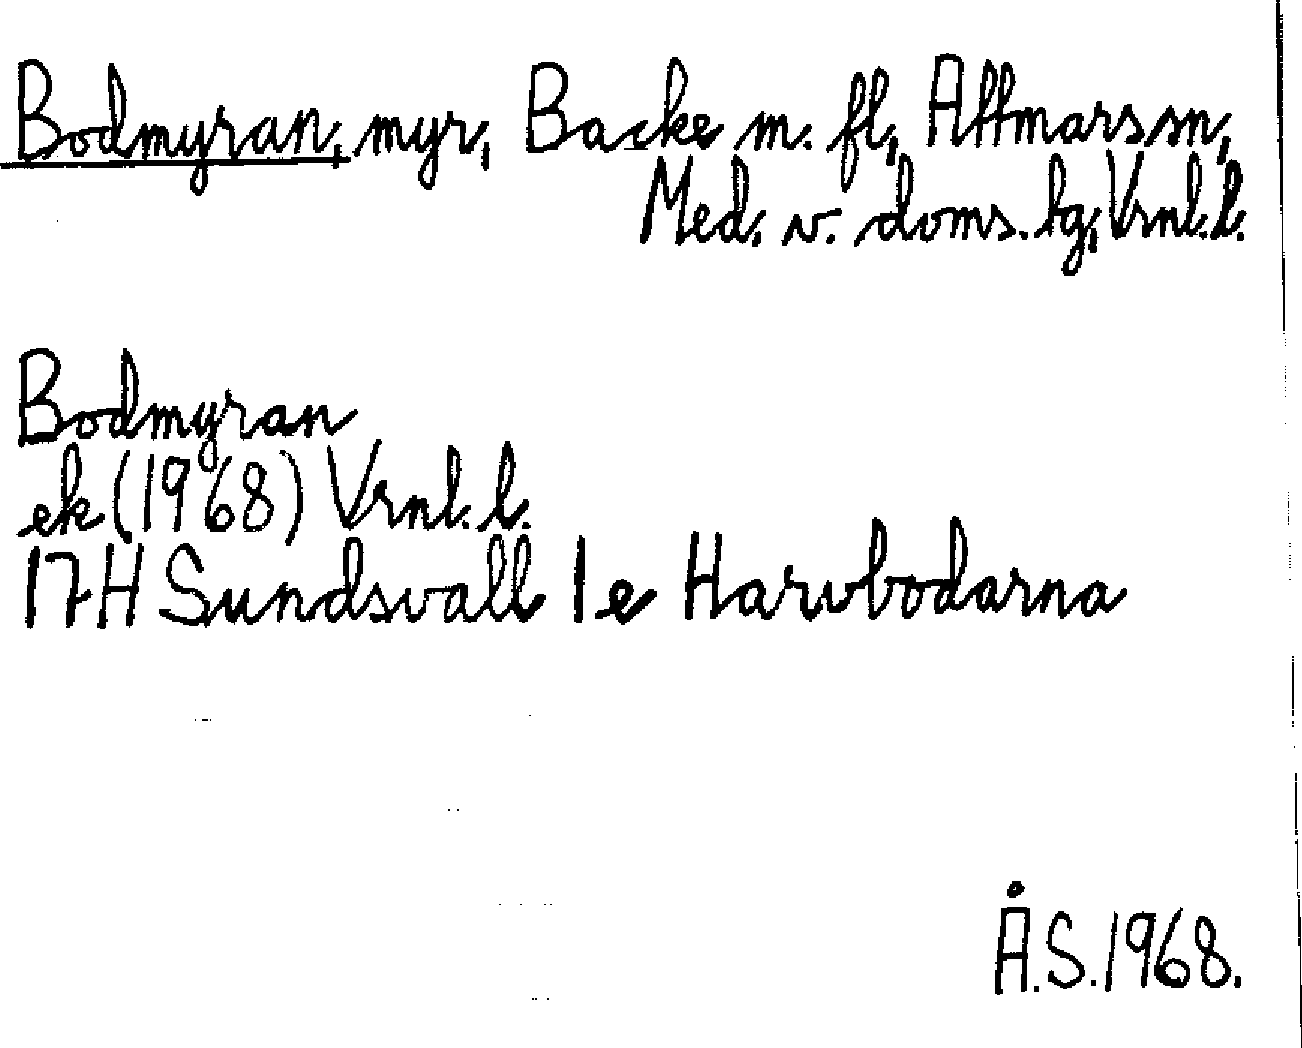 Bodmyran, myr, Backe m. fl, Attmars sn,
Med. v. doms. lg, Vrnl. l.
Bodmyran
ek (1968) Vrnl. l.
17H Sundsvall 1e Harvbodarna
Å.S. 1968.